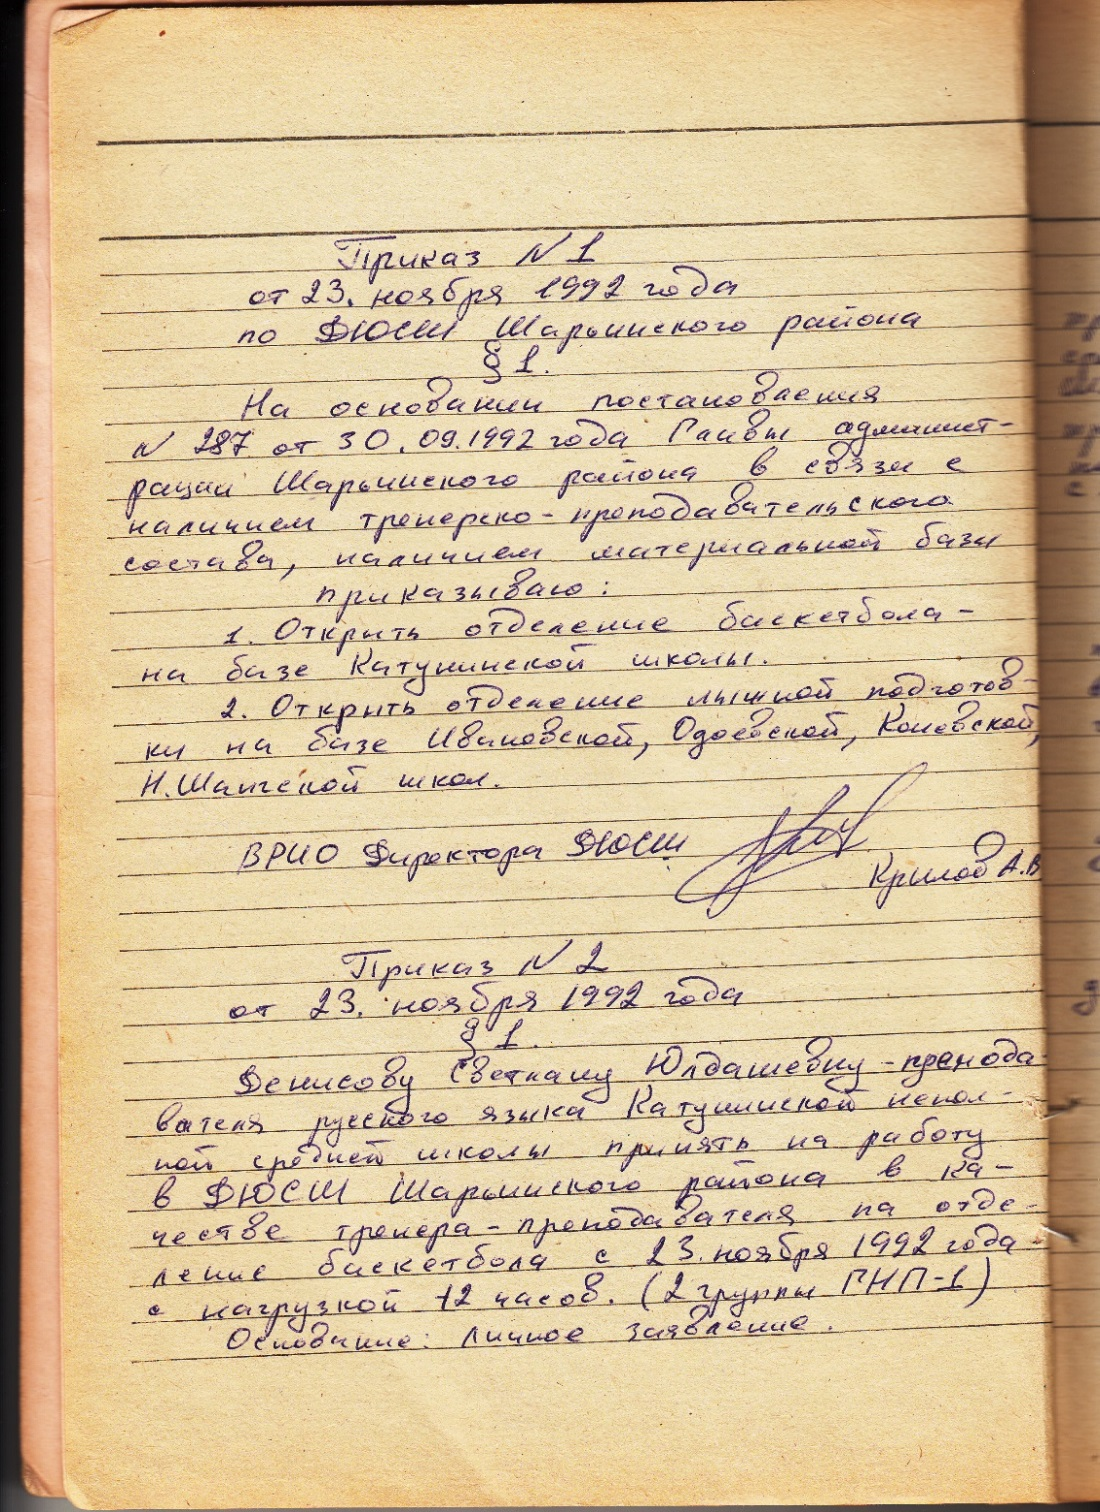 Приказ N 1
от 23. ноября 1992 года
по ДЮСШ Шарьинского района
§ 1.
На основании постановления
N 287 от 30.09.1992 года Главы админист-
рации Шарьинского района в связи с
наличием тренерско-преподавательского
состава, наличием материальной базы
приказываю:
1. Открыть отделение баскетбола -
на базе Катунинской школы.
2. Открыть отделение лыжной подготов-
ки на базе Ивановской, Одоевской, Коневской,
Н.Шангской школ.
ВРИО Директора ДЮСШ
Крилов А.В
Приказ N 2
от 23. ноября 1992 года
§ 1.
Денисову Светлану Юлдашевну - препода-
вателя русского языка Катунинской непол-
ной средней школы принять на работу
в ДЮСШ Шарьинского района в ка-
честве тренера-преподавателя на отде-
ление баскетбола с 23. ноября 1992 года
с нагрузкой 12 часов. (2 группы ГНП-1)
Основание: личное заявление.